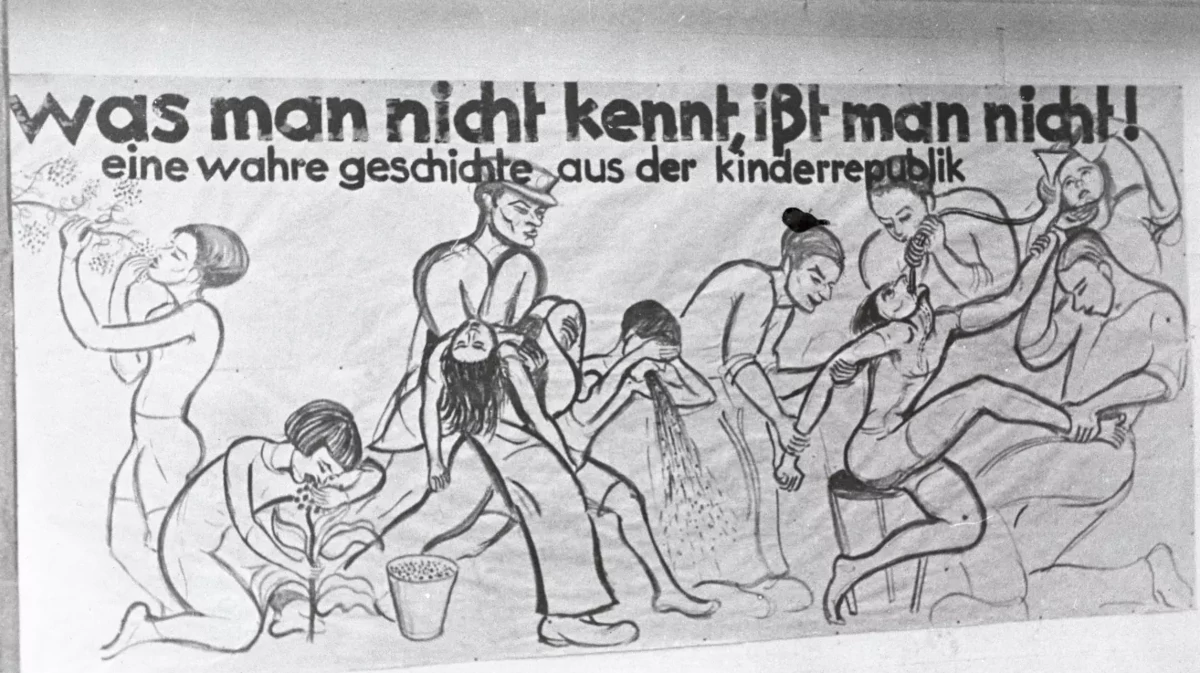 was man nicht kennt, ißt man nicht!
eine wahre geschichte aus der kinderrepublik